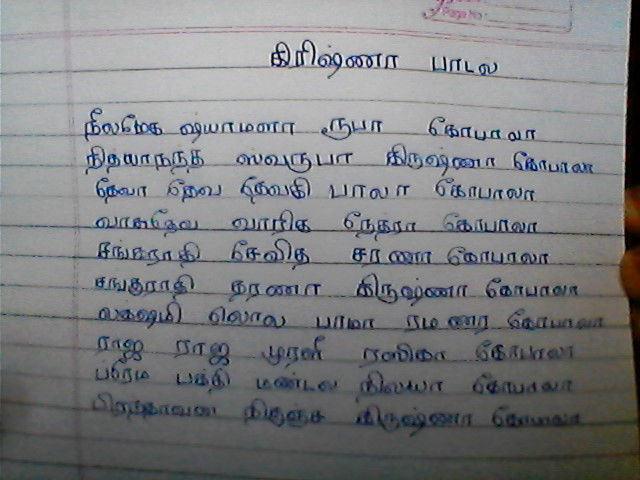 Page No:
கிரிஷ்ணா பாடல
நீலமேக ஷ்யாமளா ரூபா கோபாலா
நித்யாநந்த ஸ்வரூபா கிருஷ்ணா கோபாலா
தேவா தேவ தேவகி பாலா கோபாலா
வாசுதேவ வாரிஜ நேத்ரா கோபாலா
சங்கராதி சேவித சரணா கோபாலா
தரணா கிருஷ்ணா கோபாலா
லக்ஷ்மி லொல பாமா ரமணர கோபாலா
ராஜ ராஜ முரளீ ரஸிகா கோபாலா
பரேம பக்தி மண்டல நிலயா கோபாலா
கிருஷ்ணா கோபாலா